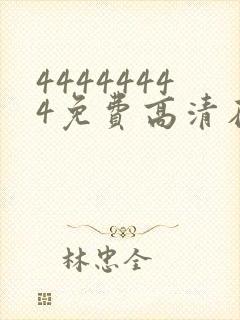 4444444
4免費高清
林忠全